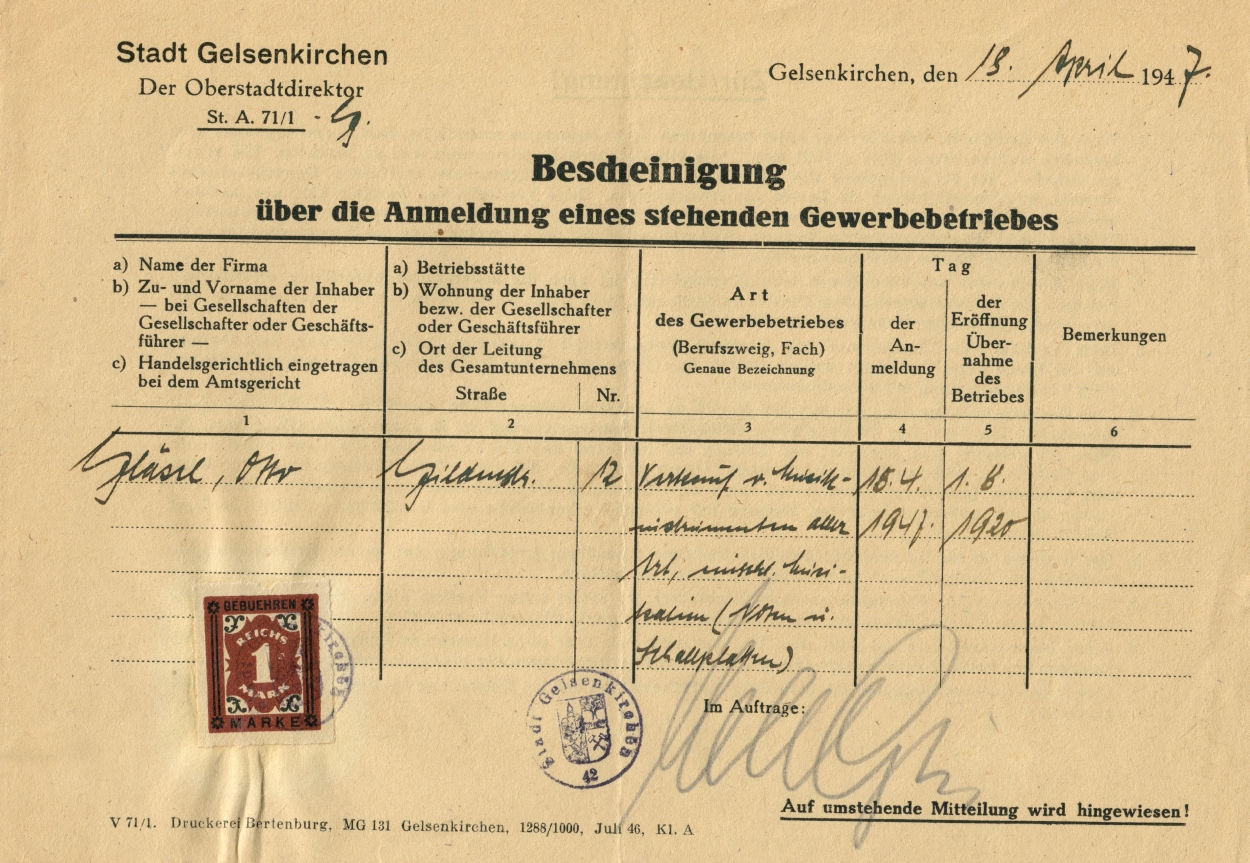 Stadt Gelsenkirchen
Der Oberstadtdirektor
St. A. 71/1
Gelsenkirchen, den 18. April 1947.
Bescheinigung
über die Anmeldung eines stehenden Gewerbebetriebes
a) Name der Firma
b) Zu- und Vorname der Inhaber
— bei Gesellschaften der
Gesellschafter oder Geschäfts-
führer —
c) Handelsgerichtlich eingetragen
bei dem Amtsgericht
a) Betriebsstätte
b) Wohnung der Inhaber
bezw. der Gesellschafter
oder Geschäftsführer
c) Ort der Leitung
des Gesamtunternehmens
Straße Nr.
Art
des Gewerbebetriebes
(Berufszweig, Fach)
Genaue Bezeichnung
Tag
der
An-
meldung
der
Eröffnung
Über-
nahme
des
Betriebes
Bemerkungen
1 2 3 4 5 6
Gläsel, Otto Gildenstr. 12 Verkauf v. Musik- 18.4. 1.8.
instrumenten aller 1947. 1920
Art, Musi-
kalien (Noten u.
Schallplatten)
GEBUEHREN
REICHS
1
MARK
MARKE
Stadt Gelsenkirchen
42
Im Auftrage:
Auf umstehende Mitteilung wird hingewiesen!
V 71/1. Druckerei Bertenburg, MG 131 Gelsenkirchen, 1288/1000, Juli 46, Kl. A